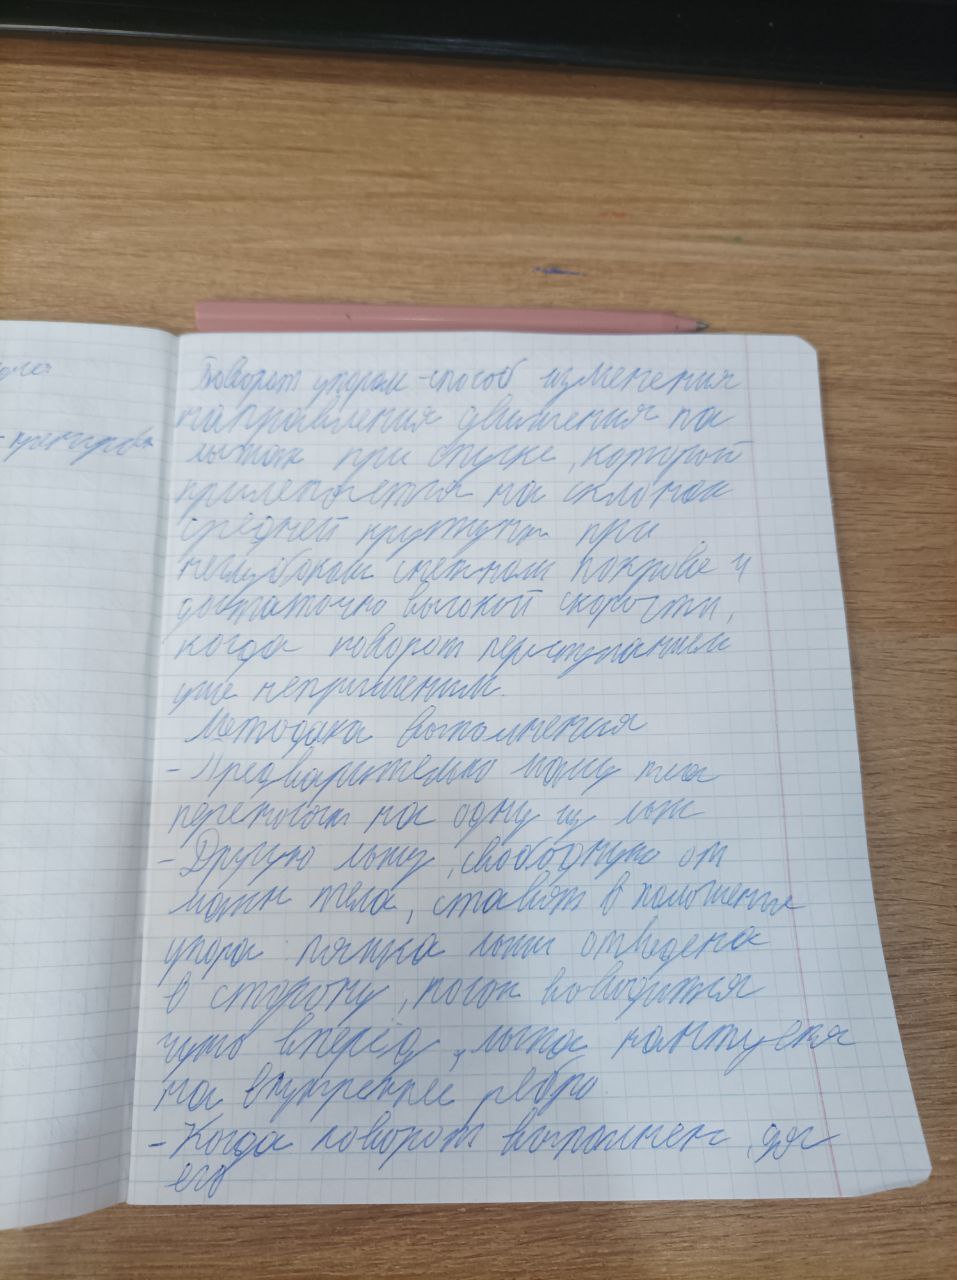 Поворот упором - способ изменения
направления движения на
лыжах при спуске, который
применяется на склонах
средней крутизны при
неглубоком снежном покрове и
достаточно высокой скорости,
когда поворот переступанием
уже неприменим.
Методика выполнения
- Предварительно массу тела
переносят на одну из лыж
- Другую лыжу, свободную от
массы тела, ставят в положение
упора: пятка лыжи отведена
в сторону, носок выводится
чуть вперёд, лыжа кантуется
на внутреннее ребро
- Когда поворот выполнен, для
его